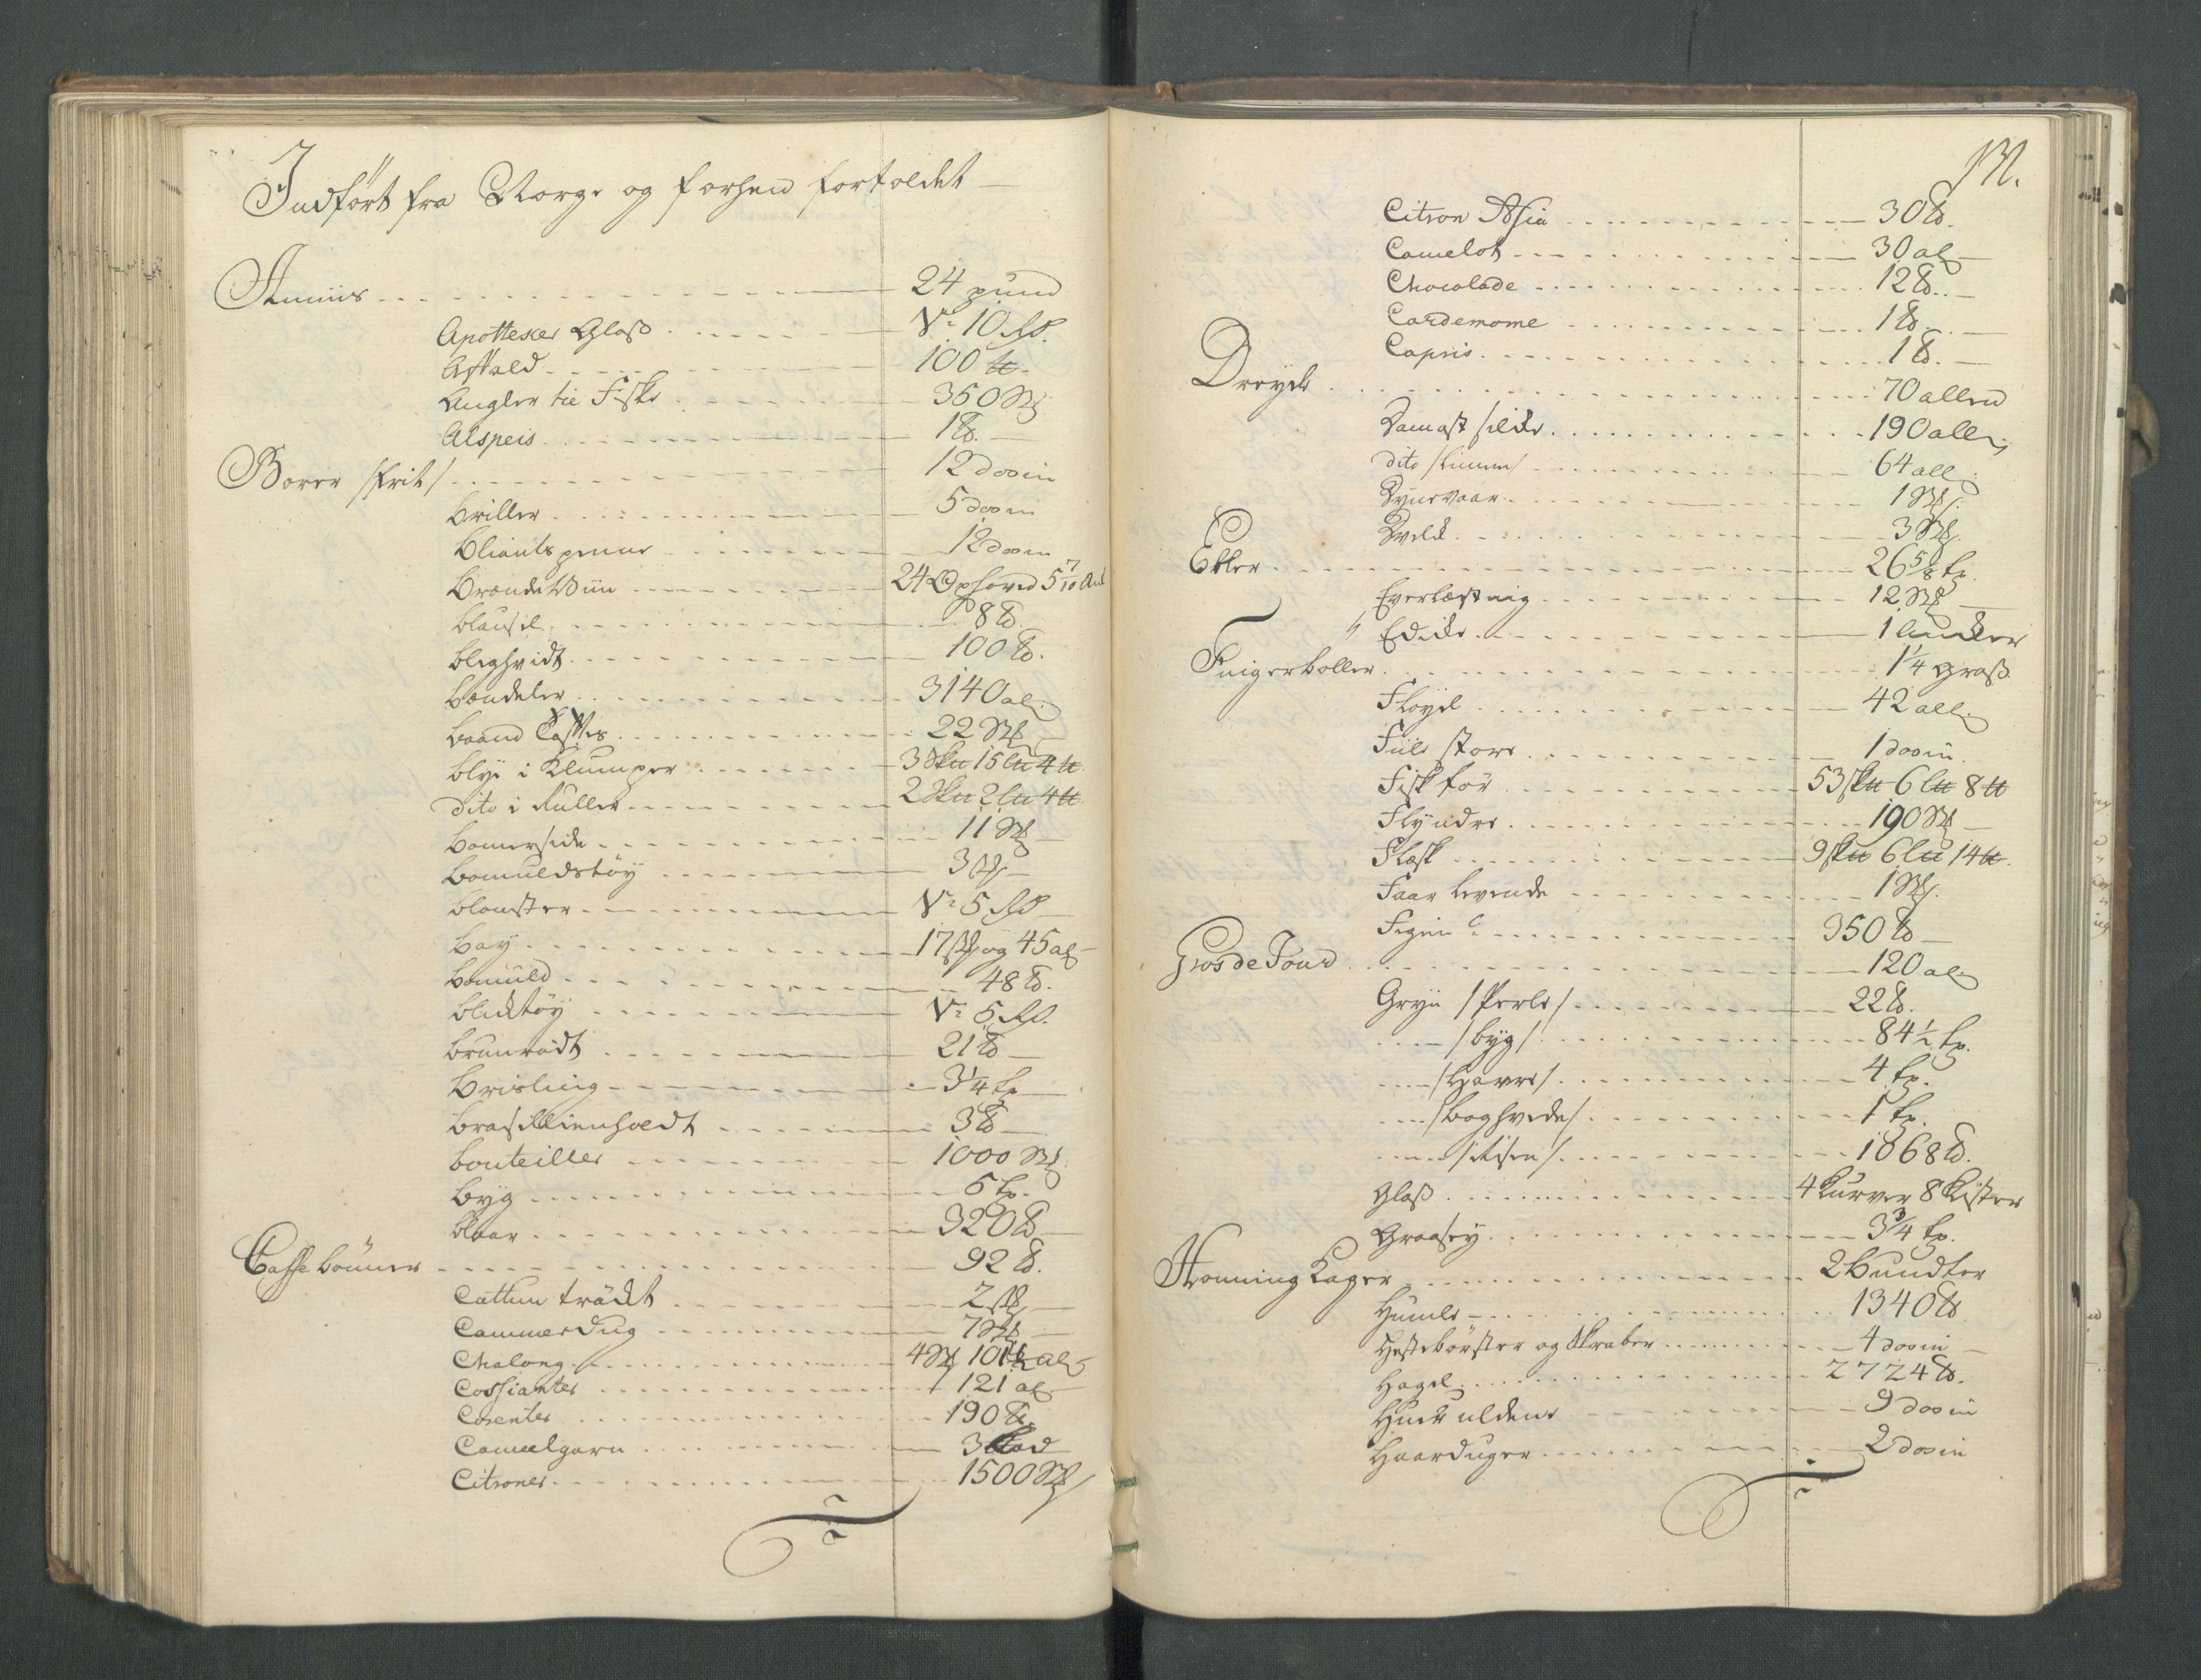 Indført fra Norge og forhen fortoldet
Anniis 24 pund
Apotteker Glaß V: 10 Rd.
Affald 100 ℔
Angler til Fiske 350 St
Alspeis 1 ℔.
Borer /Frit/ 12 dosin
Briller 5 dosin
Bliants penne 12 dosin
Brænde Viin 24 Oxhoved 5 7/10 Ank
Blausel 8 ℔.
Bleghvidt 100 ℔.
Bændeler 3140 al
Baand Taftes 22 St
Blye i Klumper 3 Sk℔ 15 L℔ 4 ℔
dito i Ruller 2 Sk℔ 2 L℔ 4 ℔
Bomerside 11 St
Bomuldstøy 3 St
Blomster V: 5 Rd
Bay 17 St og 45 al
Bomuld 48 ℔.
Bliktøy V: 5 Rd.
Brunrødt 21 ℔
Brisling 3 1/4 tr
Brasillienholdt 3 ℔
Bouteiller 1000 St
Byg 5 tr.
Blaar 320 ℔
Caffe bønner 92 ℔.
Cattun trÿkt 2 St
Cammerdug 7 St
Chalong 4 St 101 1/2 al
Cossianter 121 al
Corenter 190 ℔
Cameelgarn 3 Lod
Citroner 1500 St
Citron 30 ℔.
Camelot 30 al
Chocolade 12 ℔.
Cardemome 1 ℔.
Capris 1 ℔.
Dreyels 70 allen
Damast silke 190 all
dito /Linnen/ 64 all
Dynevaar 1 St
Dvelk 3 St
Erter 26 5/8 tr.
Everlæsting 12 St
Edike 1 Anker
Fingerboller 1 1/4 groß
Fløyel 42 all
Fiile store 1 dosin
Fisk tør 53 sk℔ 6 L℔ 8 ℔
Flyndre 190 St
Flæsk 9 sk℔ 6 L℔ 14 ℔.
Faar levende 1 St
Figen 350 ℔
Gros de Tour 120 al
Gryn /Perle/ 22 ℔.
/Byg/ 84 1/2 tr.
/Havre/ 4 tr.
/Boghvede/ 1 tr.
/Risen/ 1868 ℔.
Glaß 4 Kurver 8 Kister
Graasey 3 3/4 tr.
Honning Kager 2 bundter
Humle 1340 ℔
Hestebørster og Skraber 4 dosin
Hagel 2724 ℔.
Huer uldene 9 dosin
Haarduger 2 dosin